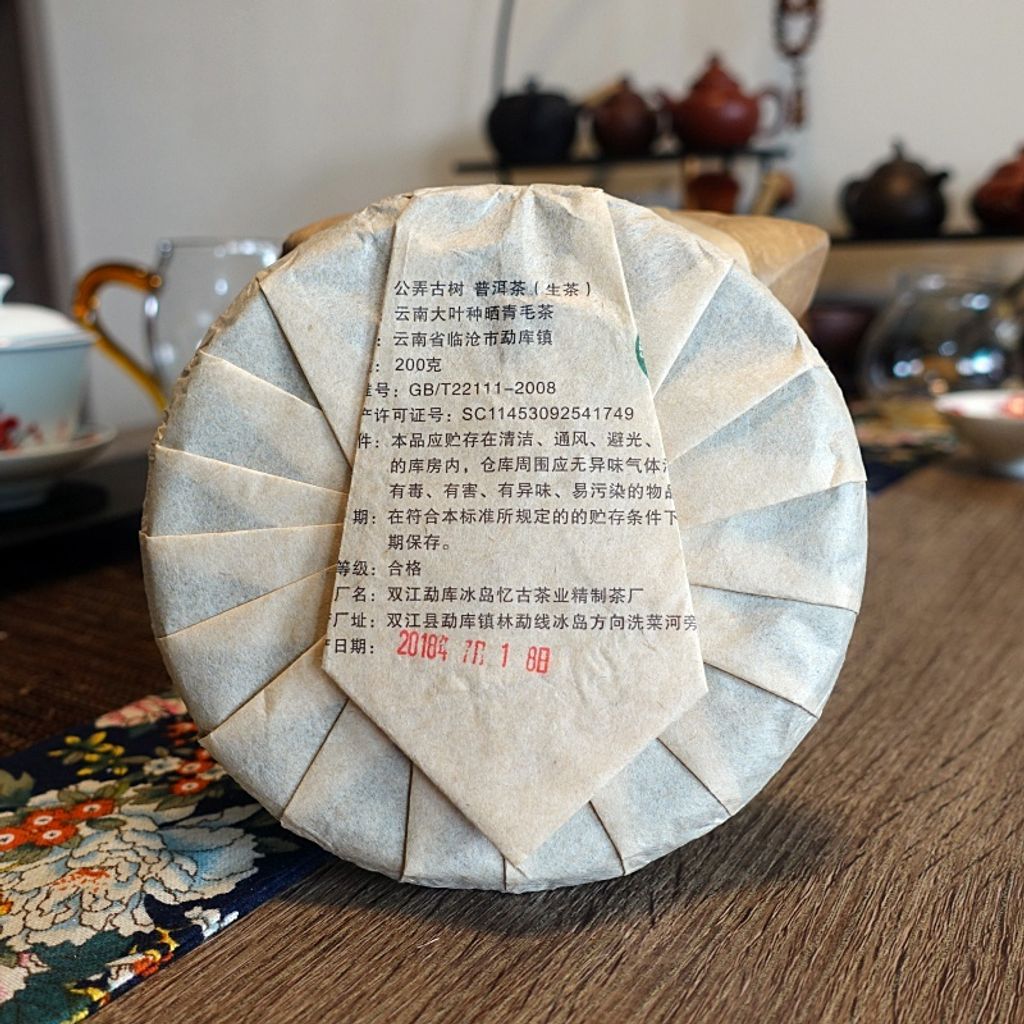 公弄古树 普洱茶（生茶）
云南大叶种晒青毛茶
：云南省临沧市勐库镇
：200克
准号：GB/T22111-2008
产许可证号：SC11453092541749
件：本品应贮存在清洁、通风、避光、
的库房内，仓库周围应无异味气体
有毒、有害、有异味、易污染的物品
期：在符合本标准所规定的的贮存条件下
期保存。
等级：合格
厂名：双江勐库冰岛忆古茶业精制茶厂
厂址：双江县勐库镇林勐线冰岛方向洗菜河旁
日期：2018年 7月 1 8日